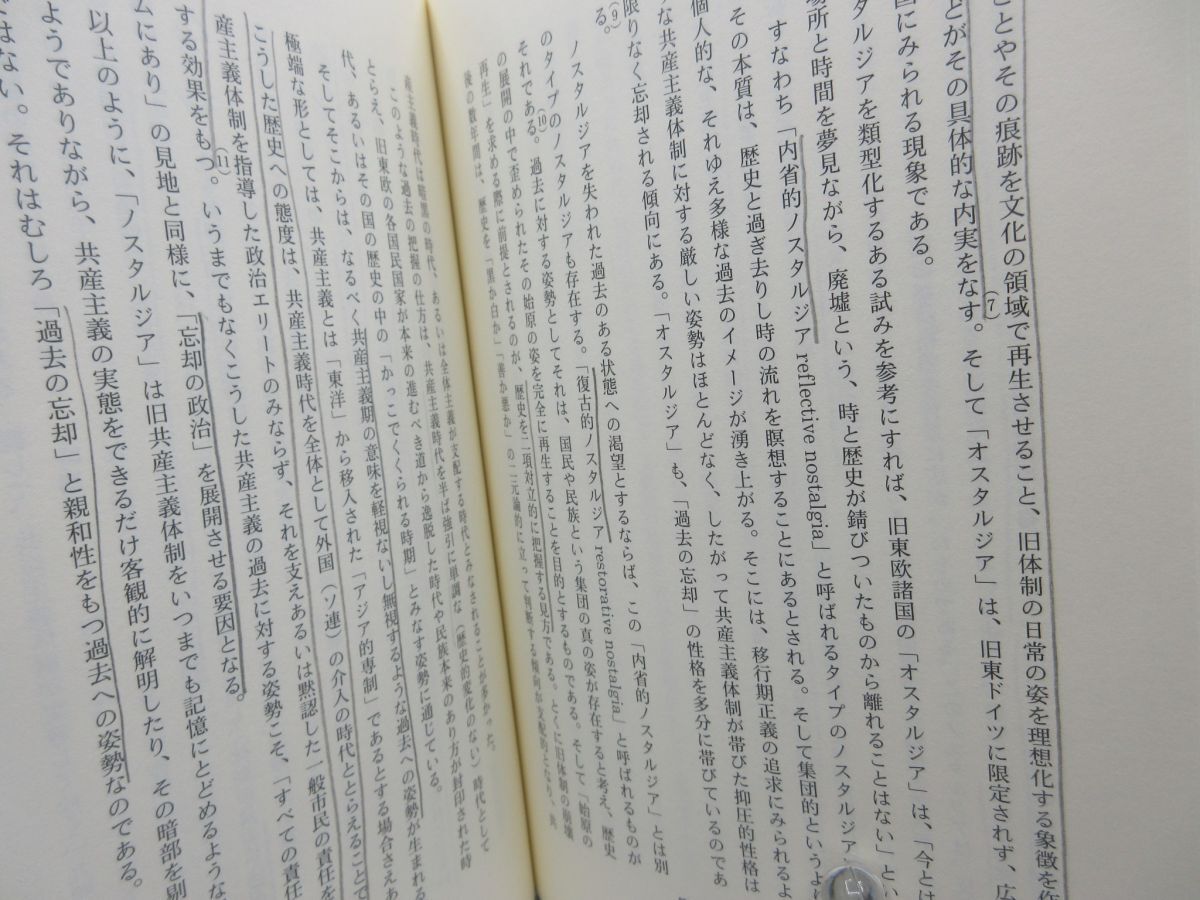 ことやその痕跡を文化の領域で再生させること、旧体制の日常の姿を理想化する象徴を作
どがその具体的な内実をなす。(7)そして「オスタルジア」は、旧東ドイツに限定されず、広
国にみられる現象である。
タルジアを類型化するある試みを参考にすれば、旧東欧諸国の「オスタルジア」は、「今とは
場所と時間を夢見ながら、廃墟という、時と歴史が錆びついたものから離れることはない」とい
すなわち「内省的ノスタルジア reflective nostalgia」と呼ばれるタイプのノスタルジア
その本質は、歴史と過ぎ去りし時の流れを瞑想することにあるとされる。そして集団的というより
個人的な、それゆえ多様な過去のイメージが湧き上がる。そこには、移行期正義の追求にみられるよ
な共産主義体制に対する厳しい姿勢はほとんどなく、したがって共産主義体制が帯びた抑圧的性格は
限りなく忘却される傾向にある。「オスタルジア」も、「過去の忘却」の性格を多分に帯びているのであ
る。(9)
ノスタルジアを失われた過去のある状態への渇望とするならば、この「内省的ノスタルジア」とは別
のタイプのノスタルジアも存在する。「復古的ノスタルジア restorative nostalgia」と呼ばれるものが
それである。(10)過去に対する姿勢としてそれは、国民や民族という集団の真の姿が存在すると考え、歴史
の展開の中で歪められたその始原の姿を完全に再生することを目的とするものである。そして「始原の
再生」を求める際に前提とされるのが、歴史を二項対立的に把握する見方である。とくに旧体制の崩壊
後の数年間は、歴史を「黒か白か」「善か悪か」の二元論的に立って判断する傾向が支配的となり、共
産主義時代は暗黒の時代、あるいは全体主義が支配する時代とみなされることが多かった。
このような過去の把握の仕方は、共産主義時代を半ば強引に単調な(歴史的変化のない)時代として
とらえ、旧東欧の各国国民国家が本来の進むべき道から逸脱した時代や民族本来のあり方が封印された時
代、あるいはその国の歴史の中の「かっこでくくられる時期」とみなす姿勢に通じている。
そしてそこからは、なるべく共産主義期の意味を軽視ないし無視するような過去への姿勢が生まれる
極端な形としては、共産主義とは「東洋」から移入された「アジア的専制」であるとする場合さえあ
こうした歴史への態度は、共産主義時代を全体として外国(ソ連)の介入の時代ととらえることで
産主義体制を指導した政治エリートのみならず、それを支えあるいは黙認した一般市民の責任を
する効果をもつ。(11)いうまでもなくこうした共産主義の過去に対する姿勢こそ、「すべての責任
ムにあり」の見地と同様に、「忘却の政治」を展開させる要因となる。
以上のように、「ノスタルジア」は旧共産主義体制をいつまでも記憶にとどめるような
ようでありながら、共産主義の実態をできるだけ客観的に解明したり、その暗部を剔
ではない。それはむしろ「過去の忘却」と親和性をもつ過去への姿勢なのである。